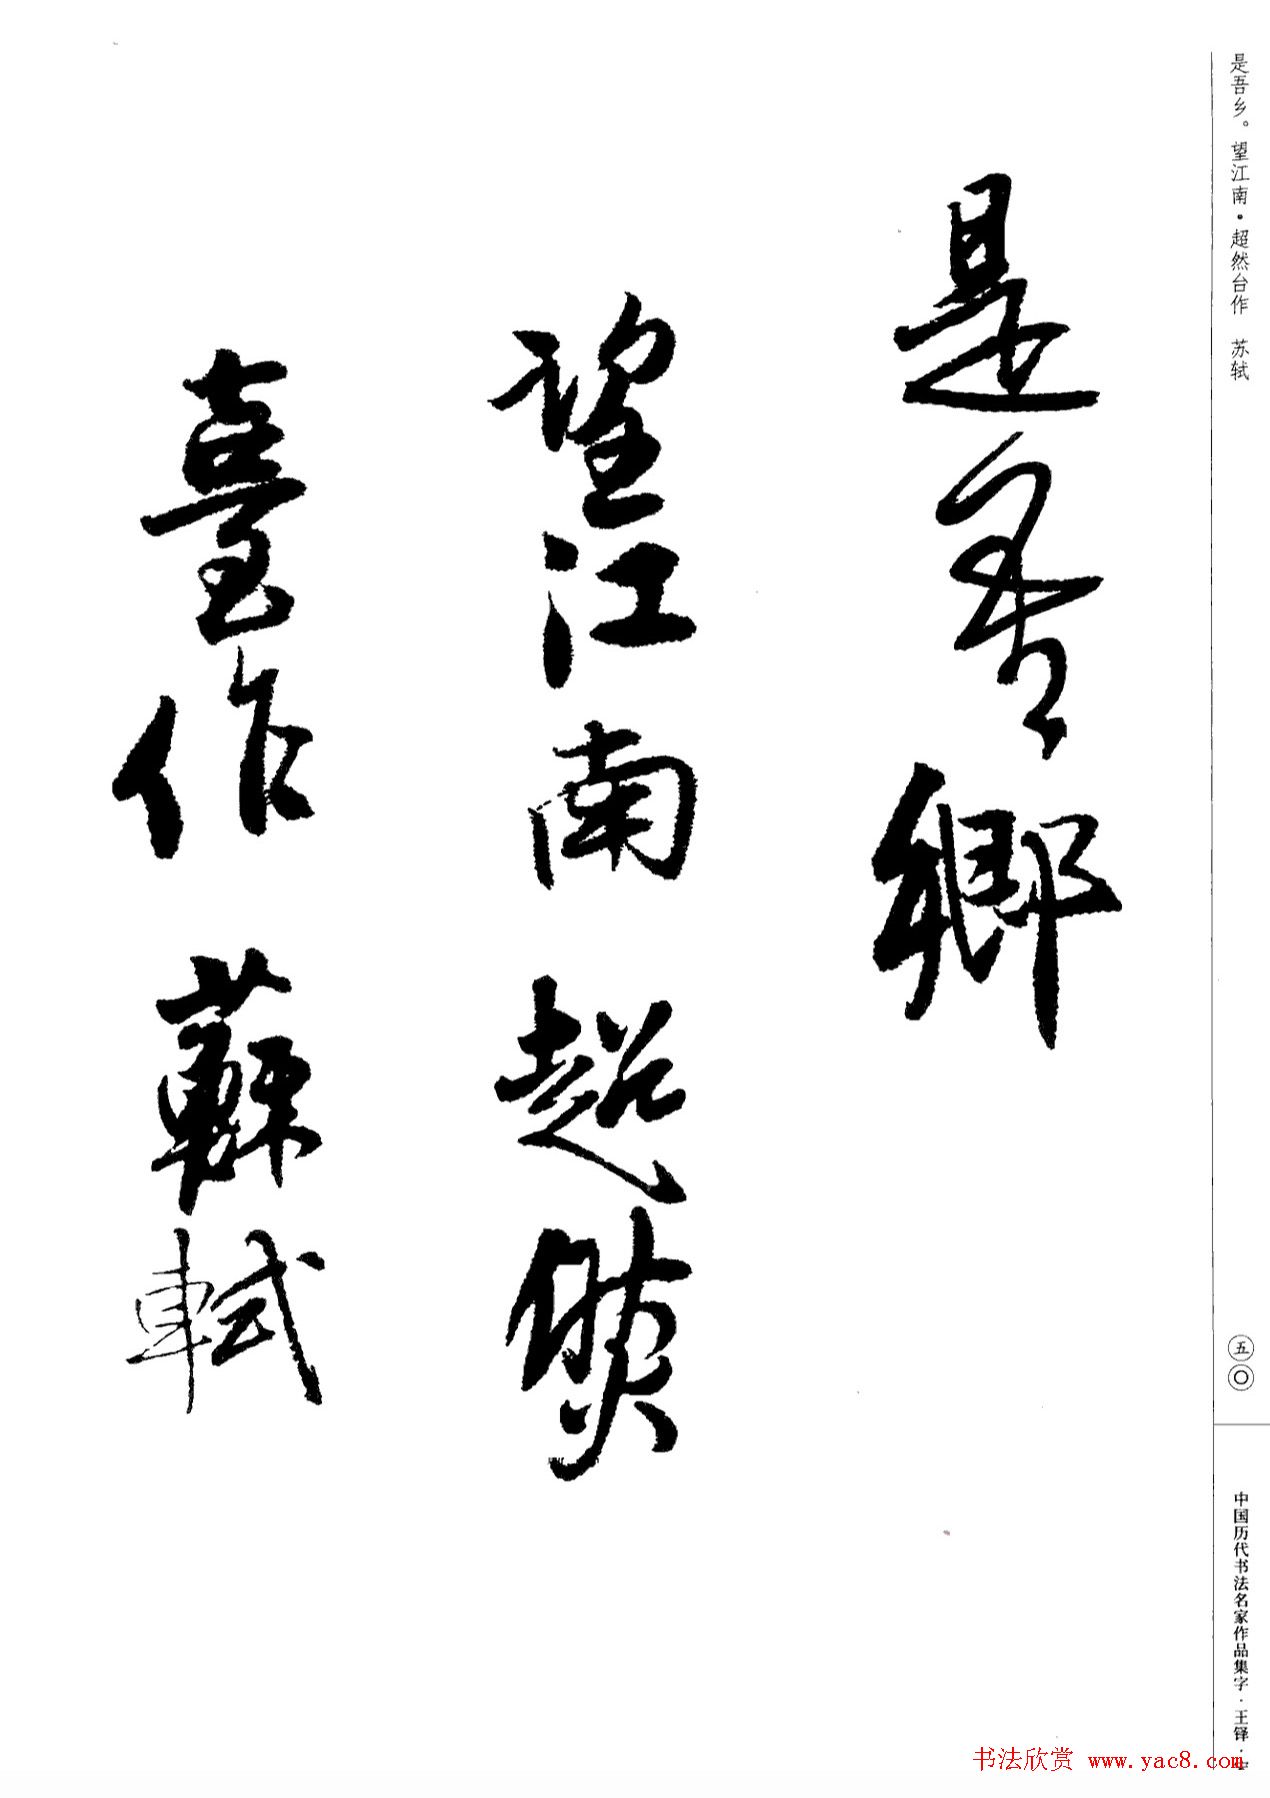 是吾乡。望江南·超然台作　苏轼
是吾鄉
望江南超然
臺作　蘇軾
五〇
中国历代书法名家作品集字·王铎·
书法欣赏 www.yac8.com